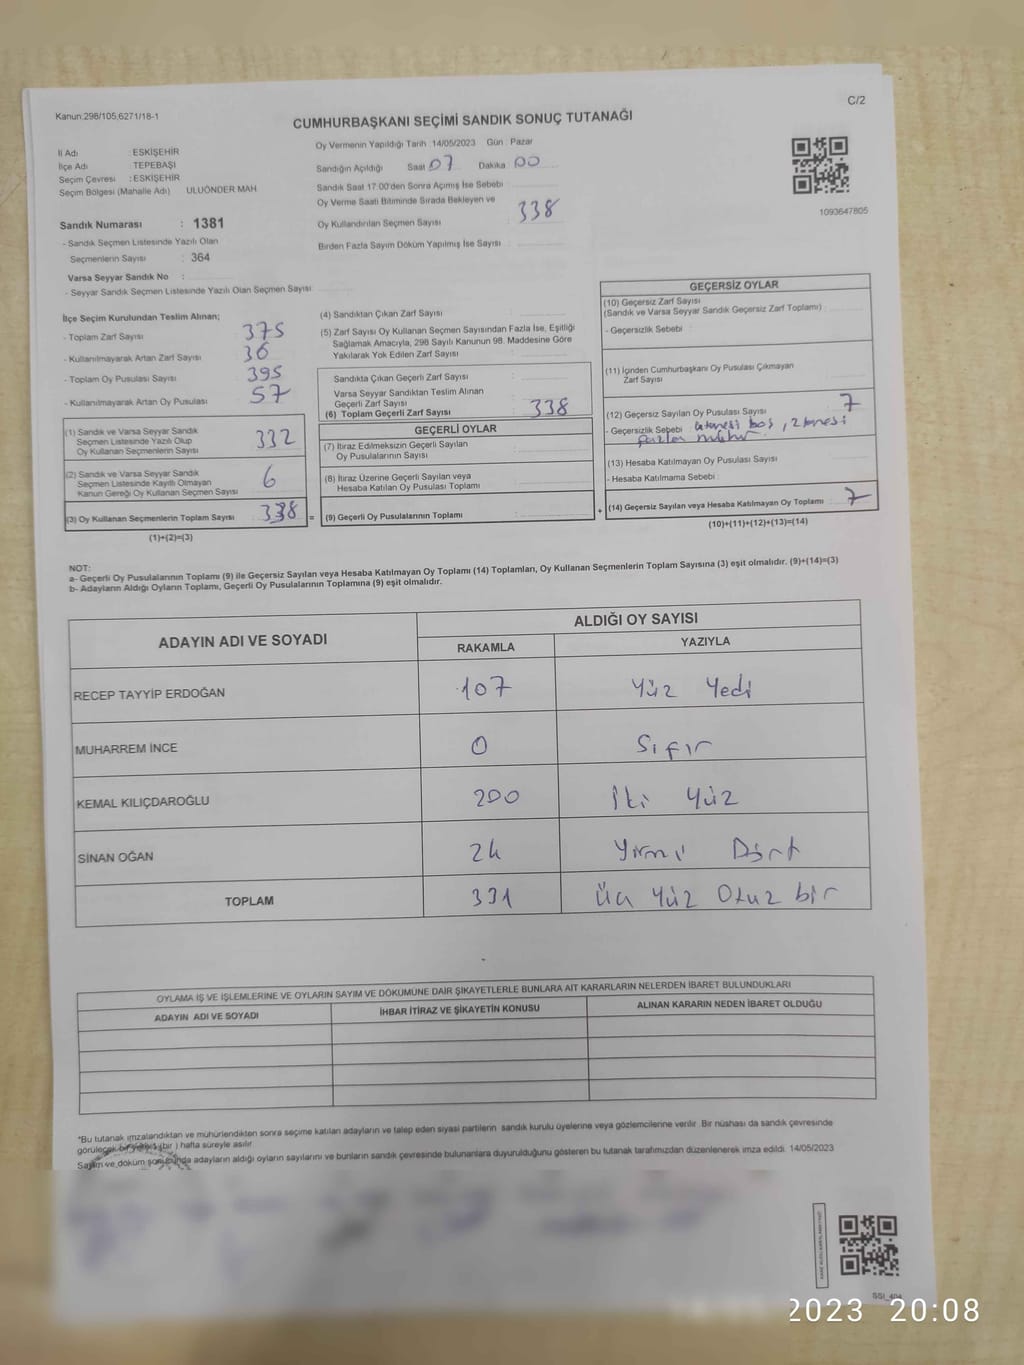 Kanun.298/105,6271/18-1
C/2
CUMHURBAŞKANI SEÇİMİ SANDIK SONUÇ TUTANAĞI
İl Adı : ESKİŞEHİR
İlçe Adı : TEPEBAŞI
Seçim Çevresi : ESKİŞEHİR
Seçim Bölgesi (Mahalle Adı) ULUÖNDER MAH
Sandık Numarası : 1381
- Sandık Seçmen Listesinde Yazılı Olan
Seçmenlerin Sayısı : 364
Varsa Seyyar Sandık No :
- Seyyar Sandık Seçmen Listesinde Yazılı Olan Seçmen Sayısı
Oy Vermenin Yapıldığı Tarih : 14/05/2023 Gün : Pazar
Sandığın Açıldığı Saat 07 Dakika 00
Sandık Saat 17:00'den Sonra Açımış İse Sebebi :
Oy Verme Saati Bitiminde Sırada Bekleyen ve
Oy Kullandırılan Seçmen Sayısı : 338
Birden Fazla Sayım Döküm Yapılmış İse Sayısı :
1093647805
İlçe Seçim Kurulundan Teslim Alınan;
- Toplam Zarf Sayısı 375
- Kullanılmayarak Artan Zarf Sayısı 36
- Toplam Oy Pusulası Sayısı 395
- Kullanılmayarak Artan Oy Pusulası 57
(1) Sandık ve Varsa Seyyar Sandık
Seçmen Listesinde Yazılı Olup
Oy Kullanan Seçmenlerin Sayısı 332
(2) Sandık ve Varsa Seyyar Sandık
Seçmen Listesinde Kayıtlı Olmayan
Kanun Gereği Oy Kullanan Seçmen Sayısı 6
(3) Oy Kullanan Seçmenlerin Toplam Sayısı 338 =
(1)+(2)=(3)
(4) Sandıktan Çıkan Zarf Sayısı
(5) Zarf Sayısı Oy Kullanan Seçmen Sayısından Fazla İse, Eşitliği
Sağlamak Amacıyla, 298 Sayılı Kanunun 98. Maddesine Göre
Yakılarak Yok Edilen Zarf Sayısı
Sandıkta Çıkan Geçerli Zarf Sayısı
Varsa Seyyar Sandıktan Teslim Alınan
Geçerli Zarf Sayısı
(6) Toplam Geçerli Zarf Sayısı 338
GEÇERLİ OYLAR
(7) İtiraz Edilmeksizin Geçerli Sayılan
Oy Pusulalarının Sayısı
(8) İtiraz Üzerine Geçerli Sayılan veya
Hesaba Katılan Oy Pusulası Toplamı
(9) Geçerli Oy Pusulalarının Toplamı +
GEÇERSİZ OYLAR
(10) Geçersiz Zarf Sayısı
(Sandık ve Varsa Seyyar Sandık Geçersiz Zarf Toplamı)
- Geçersizlik Sebebi :
(11) İçinden Cumhurbaşkanı Oy Pusulası Çıkmayan
Zarf Sayısı
(12) Geçersiz Sayılan Oy Pusulası Sayısı 7
- Geçersizlik Sebebi boş, 2 tanesi
fazla mühür
(13) Hesaba Katılmayan Oy Pusulası Sayısı
- Hesaba Katılmama Sebebi :
(14) Geçersiz Sayılan veya Hesaba Katılmayan Oy Toplamı 7
(10)+(11)+(12)+(13)=(14)
NOT:
a- Geçerli Oy Pusulalarının Toplamı (9) ile Geçersiz Sayılan veya Hesaba Katılmayan Oy Toplamı (14) Toplamları, Oy Kullanan Seçmenlerin Toplam Sayısına (3) eşit olmalıdır. (9)+(14)=(3)
b- Adayların Aldığı Oyların Toplamı, Geçerli Oy Pusulalarının Toplamına (9) eşit olmalıdır.
ADAYIN ADI VE SOYADI
ALDIĞI OY SAYISI
RAKAMLA YAZIYLA
RECEP TAYYİP ERDOĞAN 107 Yüz Yedi
MUHARREM İNCE 0 Sıfır
KEMAL KILIÇDAROĞLU 200 İki Yüz
SİNAN OĞAN 24 Yirmi Dört
TOPLAM 331 Üç Yüz Otuz bir
OYLAMA İŞ VE İŞLEMLERİNE VE OYLARIN SAYIM VE DÖKÜMÜNE DAİR ŞİKAYETLERLE BUNLARA AİT KARARLARIN NELERDEN İBARET BULUNDUKLARI
ADAYIN ADI VE SOYADI İHBAR İTİRAZ VE ŞİKAYETİN KONUSU ALINAN KARARIN NEDEN İBARET OLDUĞU
*Bu tutanak imzalandıktan ve mühürlendikten sonra seçime katılan adayların ve talep eden siyasi partilerin sandık kurulu üyelerine veya gözlemcilerine verilir. Bir nüshası da sandık çevresinde
görülecek bir yere 1 (bir) hafta süreyle asılır.
Sayım ve döküm sonucunda adayların aldığı oyların sayılarını ve bunların sandık çevresinde bulunanlara duyurulduğunu gösteren bu tutanak tarafımızdan düzenlenerek imza edildi. 14/05/2023
2023 20:08